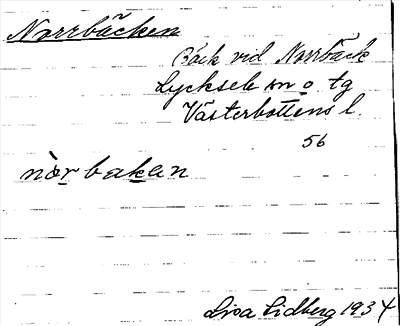 Norrbäcken
Bäck vid Norrbäck
Lycksele sn o tg
Västerbottens l.
56
nò̤r bakan
Lisa Lidberg 1934